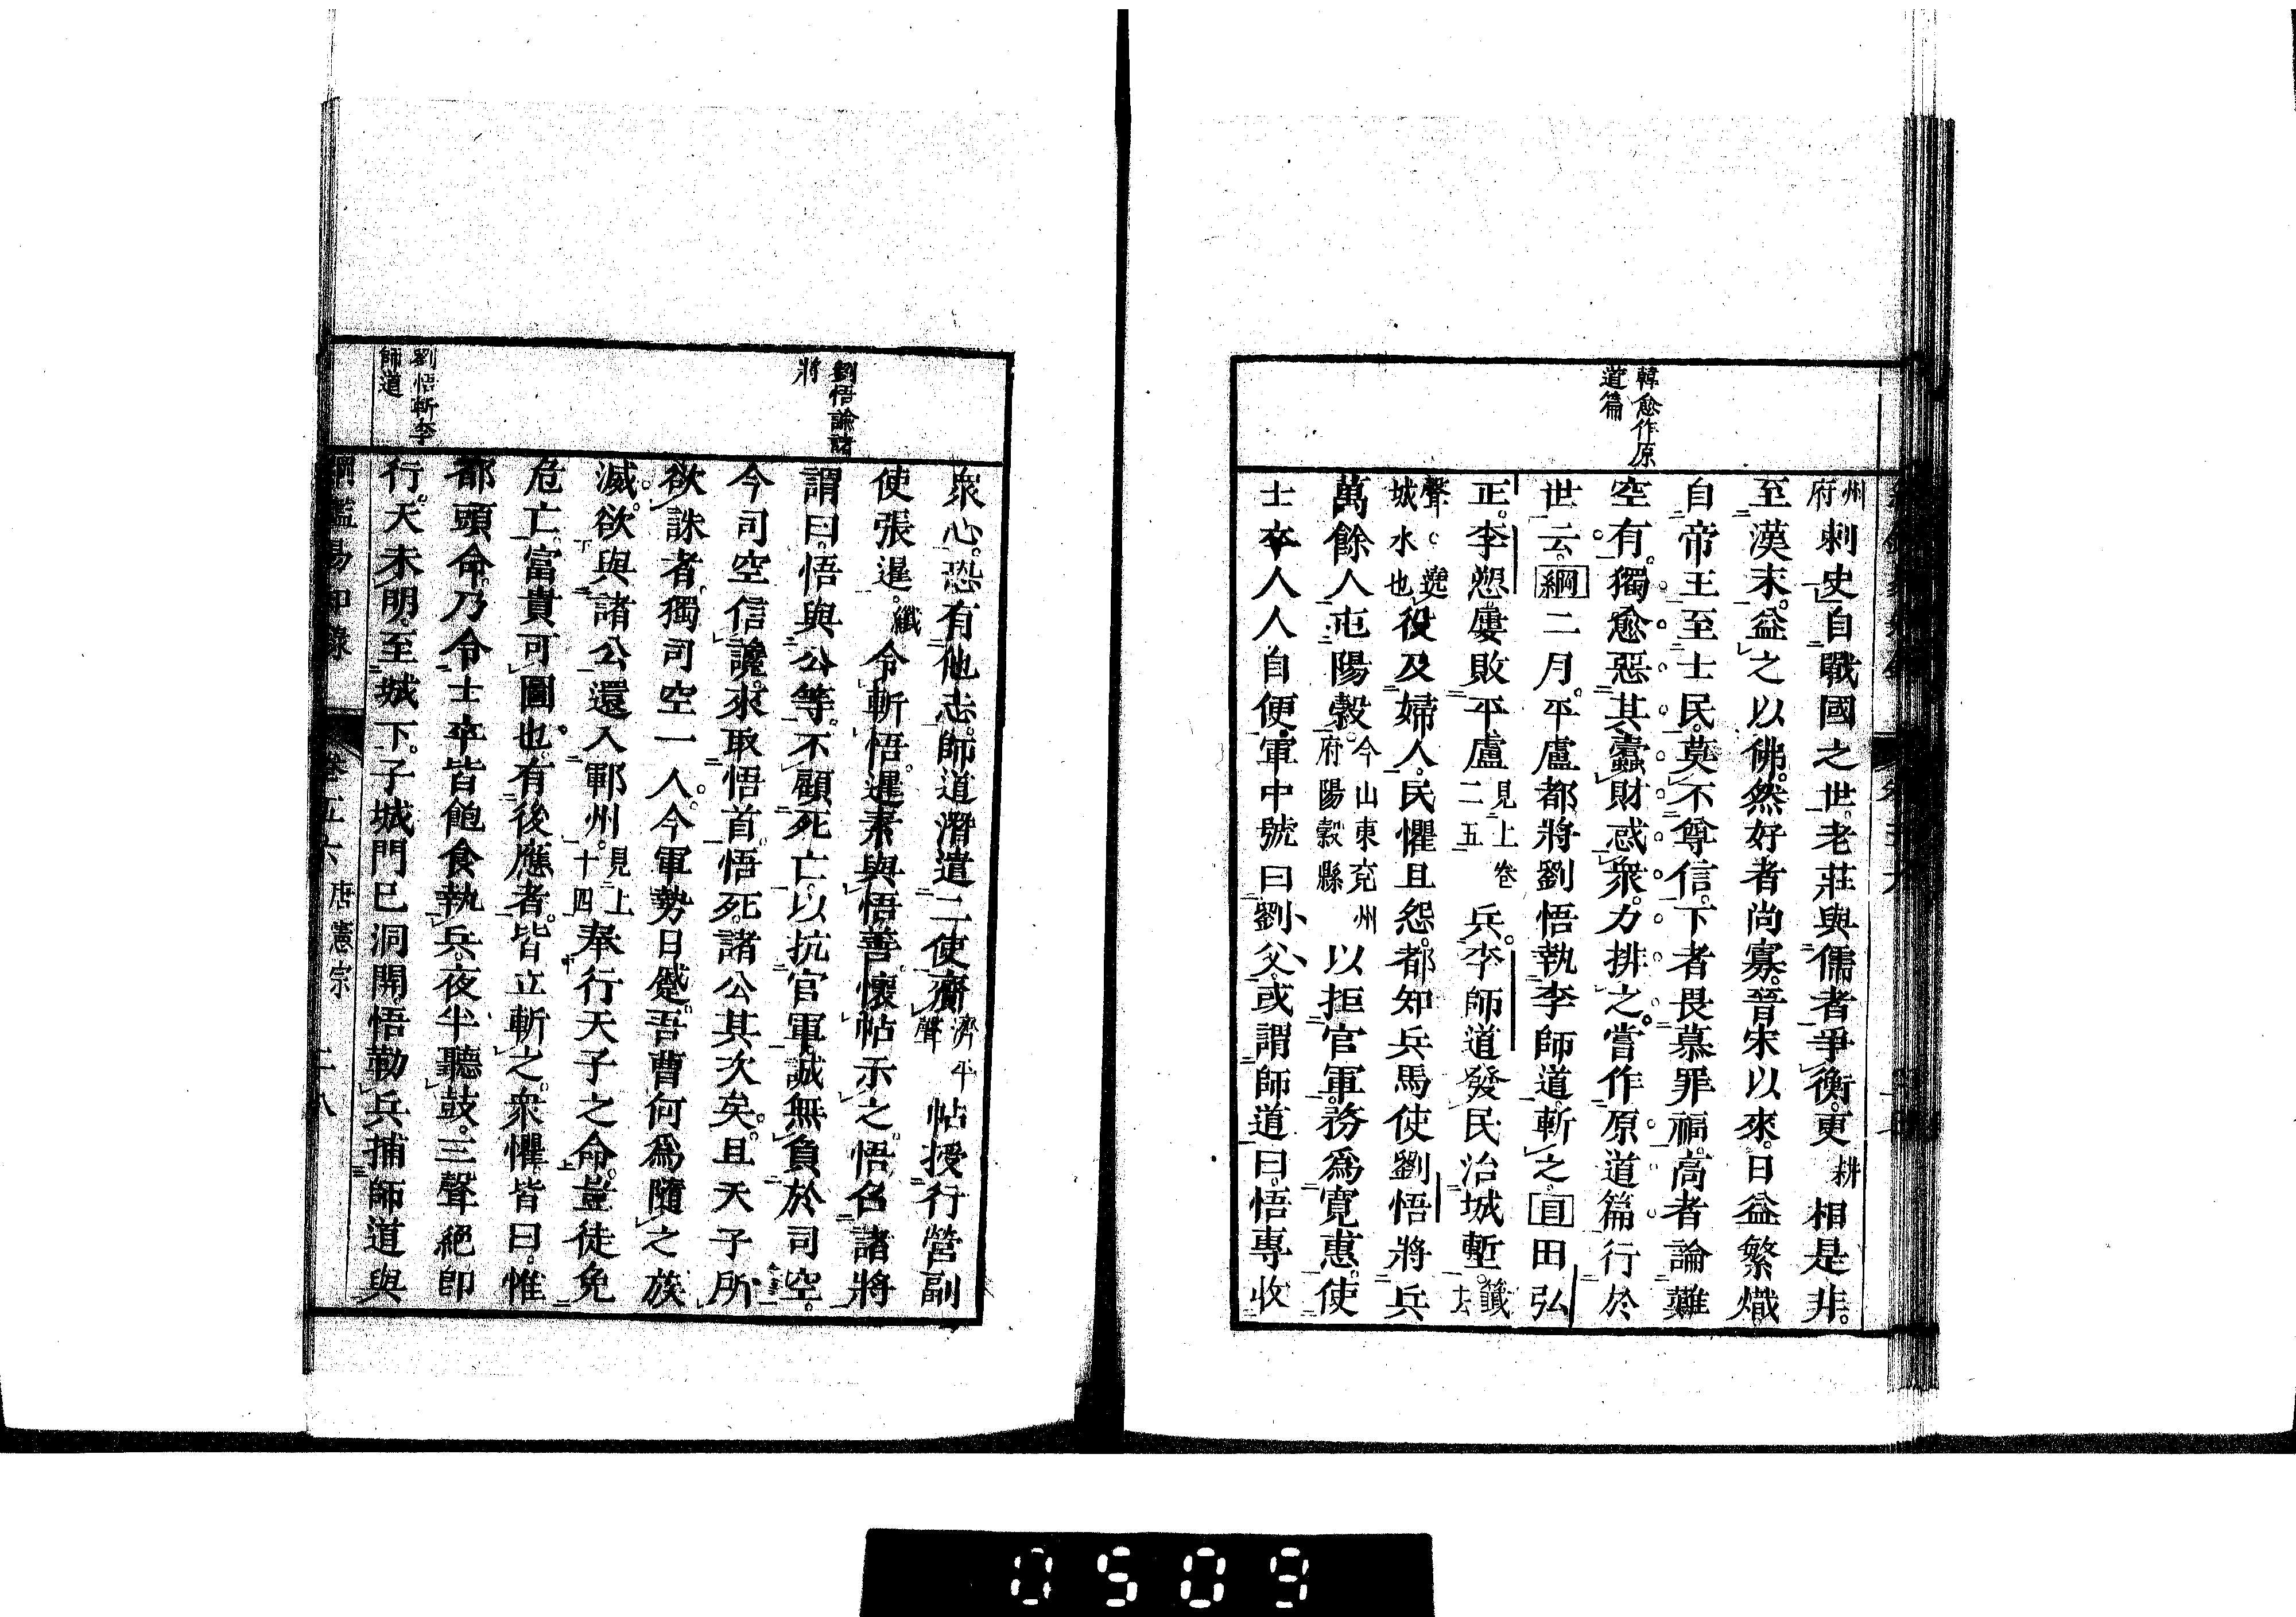 韓愈作原
道篇
州府刺史自戰國之世。老莊與儒者爭衡。更耕相是非。
至漢末。益之以佛。然好者尚寡。晉宋以來。日益繁熾。
自帝王至士民。莫不尊信。下者畏慕罪福。高者論難
空有。獨愈惡其蠹財惑衆。力排之。嘗作原道篇行於
世云。綱二月。平盧都將劉悟執李師道。斬之。目田弘
正。李愬屢敗平盧見上卷二五兵。李師道發民治城塹。籤去
聲。遶遶城水也役及婦人。民懼且怨。都知兵馬使劉悟將兵
萬餘人屯陽穀。今山東兗州府陽穀縣以拒官軍。務爲寛惠。使
士卒人人自便。軍中號曰劉父。或謂師道曰。悟專收
劉悟論諸
將
劉悟斬李
師道
衆心。恐有他志。師道潛遣二使齎濟平聲帖授行營副
使張暹。纖令斬悟。暹素與悟善。懷帖示之。悟召諸將
謂曰。悟與公等。不顧死亡。以抗官軍。誠無負於司空。
今司空信讒。來取悟首。悟死。諸公其次矣。且天子所
欲誅者。獨司空一人。今軍勢日蹙。吾曹何爲隨之族
滅。欲與諸公還入鄆州。見上十四奉行天子之命。豈徒免
危亡。富貴可圖也。有後應者。皆立斬之。衆懼。皆曰。惟
都頭命。乃令士卒皆飽食執兵。夜半聽鼓。三聲絕即
行。天未明。至城下。子城門已洞開。悟勒兵捕師道與
綱鑑易知錄 卷五六 唐憲宗 二八
0509